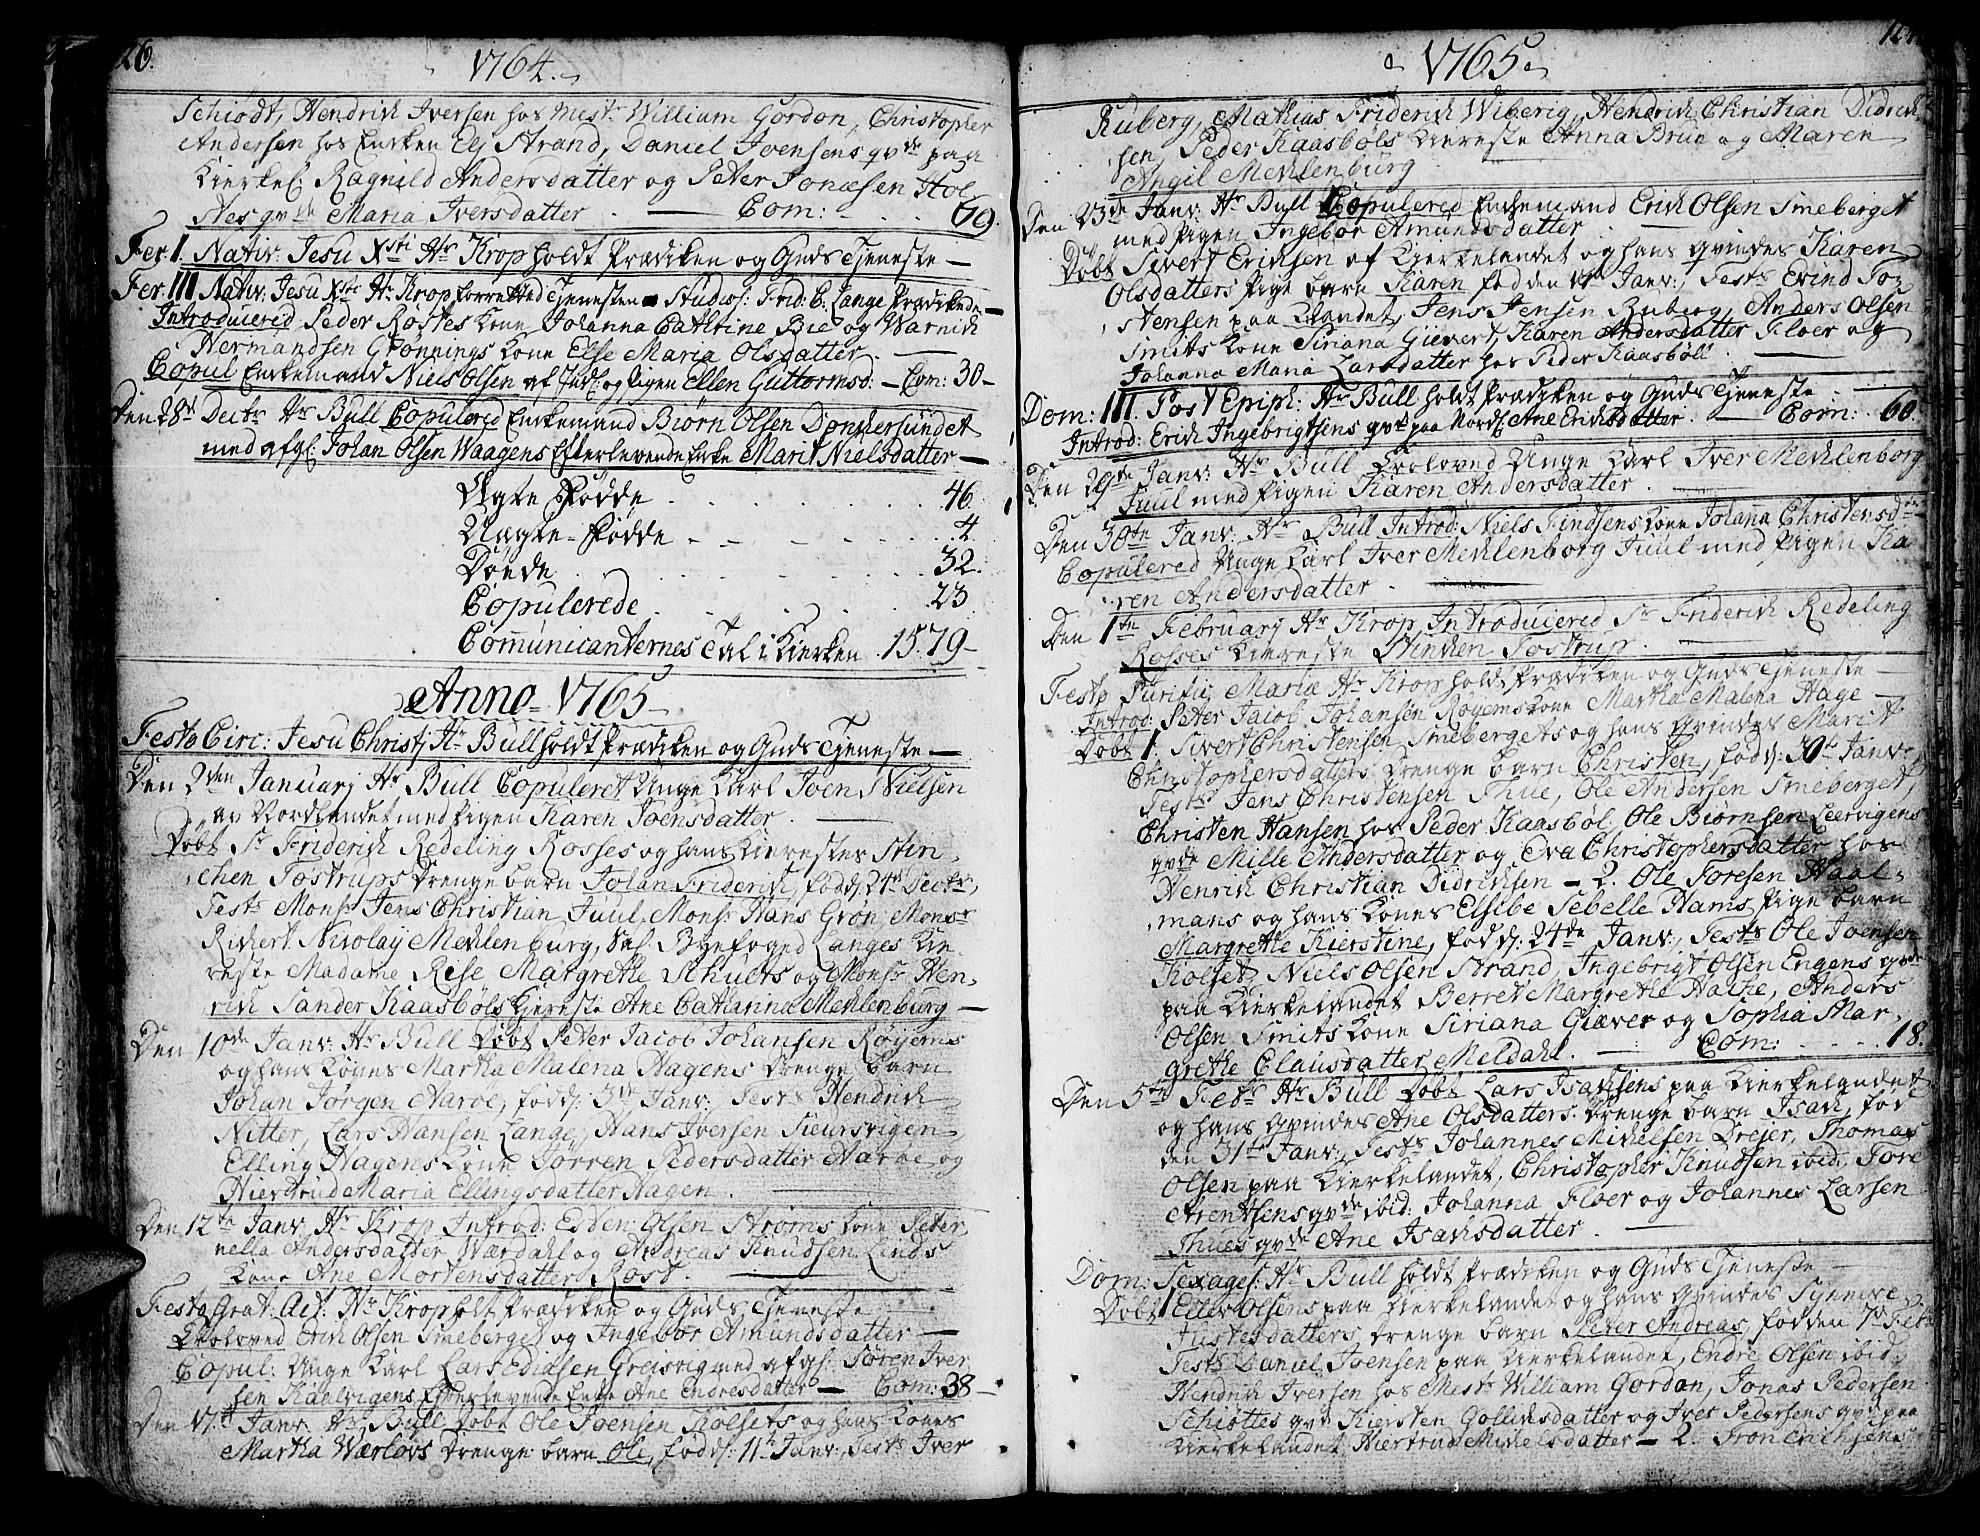 26.
1764.
Schiødt, Hendrich Iversen hos Mestr. William Gordon, Christopher
Andersen hos Enken Els Strand, Daniel Joensens qvde paa
Kierkel. Ragnild Andersdatter og Peter Jonæsen Hol
Nes qvde Maria Iversdatter. — Com: . . . 69.
Fer. I. Nativ: Jesu Xsti Hr Krop holdt Prædiken og Guds Tjeneste —
Fer. III Nativ: Jesu Xsti Hr Krop forretted Tjenesten Studios: Frid: C. Lange Prædikede —
Introducered Peder Røstes Kone Johanna Cathrine Bie og Warnich
Hermandsen Grønnings Kone Else Maria Olsdatter. —
Copul Enkemand Niels Olsen af Indl: og Pigen Ellen Guttormsd: — Com: 30 —
Den 28de Decbr Hr Bull Copulered Enkemand Biørn Olsen Donkersundet
med afgl: Johan Olsen Waagens Efterlevende Enke Marit Nielsdatter —
Ægte Fødde . . . 46.
Uægte-Fødde . . . 4
Døede . . . 32.
Copulerede . . . 23
Communicanternes Tal i Kierken . 1579 —
Anno 1765
Festo Circ: Jesu Christj Hr Bull holdt Prædiken og Guds Tjeneste —
Den 2den Januarj Hr Bull Copuleret Unge Karl Joen Nielsen
av Nordlandet med Pigen Karen Joensdatter. —
Døbt Sr Friderich Redeling Rosses og hans Kierestes Stin
chen Tostrups Drenge barn Johan Friderich, fødd: 24de Decbr,
Tests Monsr Jens Christian Juul, Monsr Hans Grøn, Monsr
Richert Nicolay Mechlenburg, Sal. Byefoged Langes Kie
reste Madame Rise Margrethe Schults og Monsr Hen
rich Sander Kaasbøls Kiereste Ane Catharina Mechlenburg —
Den 10de Janv: Hr Bull Døbt Peter Jacob Johansen Røyems
og hans Kones Martha Malena Hagens Drenge barn
Johan Jørgen Narve, fødd: 3de Janv: Tests Hendrich
Nitter, Lars Hansen Lange, Hans Iversen Sieursvigen
Elling Hagens Kone Torren Pedersdatter Narve og
Hiertrud Maria Ellingsdatter Hagen. —
Den 12te Janv Hr Krop Introd: Esben Olsen Strøms Kone Peter
nella Andersdatter Wærdahl og Andreas Knudsen Linds
Kone Ane Mortensdatter Rost. —
Festo Grat: Act: Hr Krop holdt Prædiken og Guds Tjeneste
Troloved Erich Olsen Smeberget og Ingebor Amundsdatter —
Copul: Unge Karl Lars Ediasen Greisvig med afgl: Søren Iver
sen Kaalvigens Efterlevende Enke Ane Endresdatter — Com: 38 —
Den 17de Janv Hr Bull Døbt Ole Joensen Kolsets og hans Kones
Martha Wærlovs Drenge barn Ole, fødd: 11te Janv: Tests Iver
1765
Ruberg, Mathias Friderich Wiberig, Hendrich Christian Didrich
sen, Peder Kaasbøls Kiereste Anna Brun og Maren
Angel Mechlenburg
Den 23de Janv: Hr Bull Copulered Enkemand Erich Olsen Smeberget
med Pigen Ingebor Amundsdatter. —
Døbt Sivert Erichsen af Kierkelandet og hans qvindes Karen
Olsdatters Pige barn Karen fød den Janv:, Tests Erind To
stensen paa Landet, Jens Jensen Ruberg, Anders Olsen
Smits Kone Siriana Giævert, Karen Andersdatter Floer og
Johanna Maria Larsdatter hos Peder Kaasbøll. —
Dom: III. Post Epiph: Hr Bull holdt Prædiken og Guds Tjeneste —
Introd: Erich Ingebrigtsens qvde paa Nordl: Ane Erichsdatter. — Com: 60.
Den 29de Janv: Hr Bull Troloved Unge Karl Iver Mechlenborg
Juul med Pigen Karen Andersdatter. —
Den 30te Janv: Hr Bull Introd: Niels Findsens Kone Johanna Christensdr
Copulered Unge Karl Iver Mechlenborg Juul med Pigen Ka
ren Andersdatter. —
Den 1te Februarj Hr Krop Introducered Sr Friderich Redeling
Rosses Kiereste Stinchen Tostrup. —
Festo Purific: Mariæ Hr Krop holdt Prædiken og Guds Tjeneste —
Introd: Peter Jacob Johansen Røyems Kone Martha Malena Hage —
Døbt 1. Sivert Christensen Smebergets og hans Qvindes Marit
Christophersdatters Drenge barn Christen, fødd: 30te Janv
Tests Jens Christensen Thue, Ole Andersen Smeberget,
Christen Hansen hos Peder Kaasbøl, Ole Biørnsen Leervigens
qvde Mille Andersdatter og Eva Christophersdatter hos
Henrich Christian Didrichsen — 2. Ole Toresen Haal
mans og hans Kones Elsibe Sebelle Hams Pige barn
Margrethe Kierstine, fødd: 24de Janv:, Tests Ole Joensen
Kolset, Niels Olsen Strand, Ingebrigt Olsen Engens qvde
paa Kierkelandet Berret Margrethe Hatke, Anders
Olsen Smits Kone Siriana Giæver og Sophia Mar
grethe Clausdatter Meldahl. — Com: . . . 18.
Den 5te Febr: Hr Bull Døbt Lars Isachsens paa Kierkelandet
og hans qvindes Ane Olsdatters Drenge barn Isach, fød
den 31te Janv:, Tests Johannes Michelsen Drejer, Thomas
Olsen paa Kierkelandet, Christopher Knudsen ibid:, Tore
Arentsens qvde ibid: Johanna Floer og Johannes Larsen
Thues qvde Ane Isachsdatter. —
Dom: Sexages: Hr Bull holdt Prædiken og Guds Tjeneste —
Døbt 1 Eller Olsens paa Kierkelandet og hans Qvindes Synnive
Justesdatters Drenge barn Peter Andreas, fød den 7de Febr
Tests Daniel Joensen paa Kierkelandet, Endre Olsen ibid
Hendrich Iversen hos Mestr William Gordon, Jonas Pedersen
Schiøttes qvde Kiersten Gollichsdatter og Iver Pedersens qvde paa
Kierkelandet Hiertrud Michelsdatter — 2. Tron Erichsens